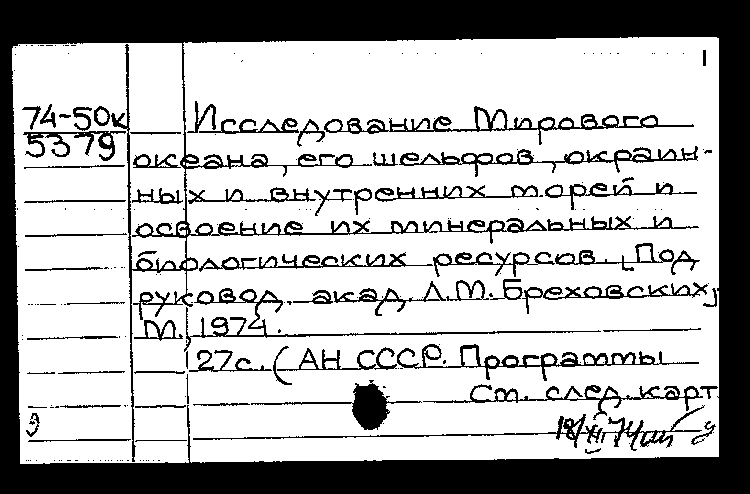 1
74-50к Исследование Мирового
5379 океана, его шельфов, окраин-
ных и внутренних морей и
освоение их минеральных и
биологических ресурсов. [Под
руковод. акад. Л.М. Бреховских]
М., 1974.
27с. (АН СССР. Программы
См. след. карт
18/XII 74